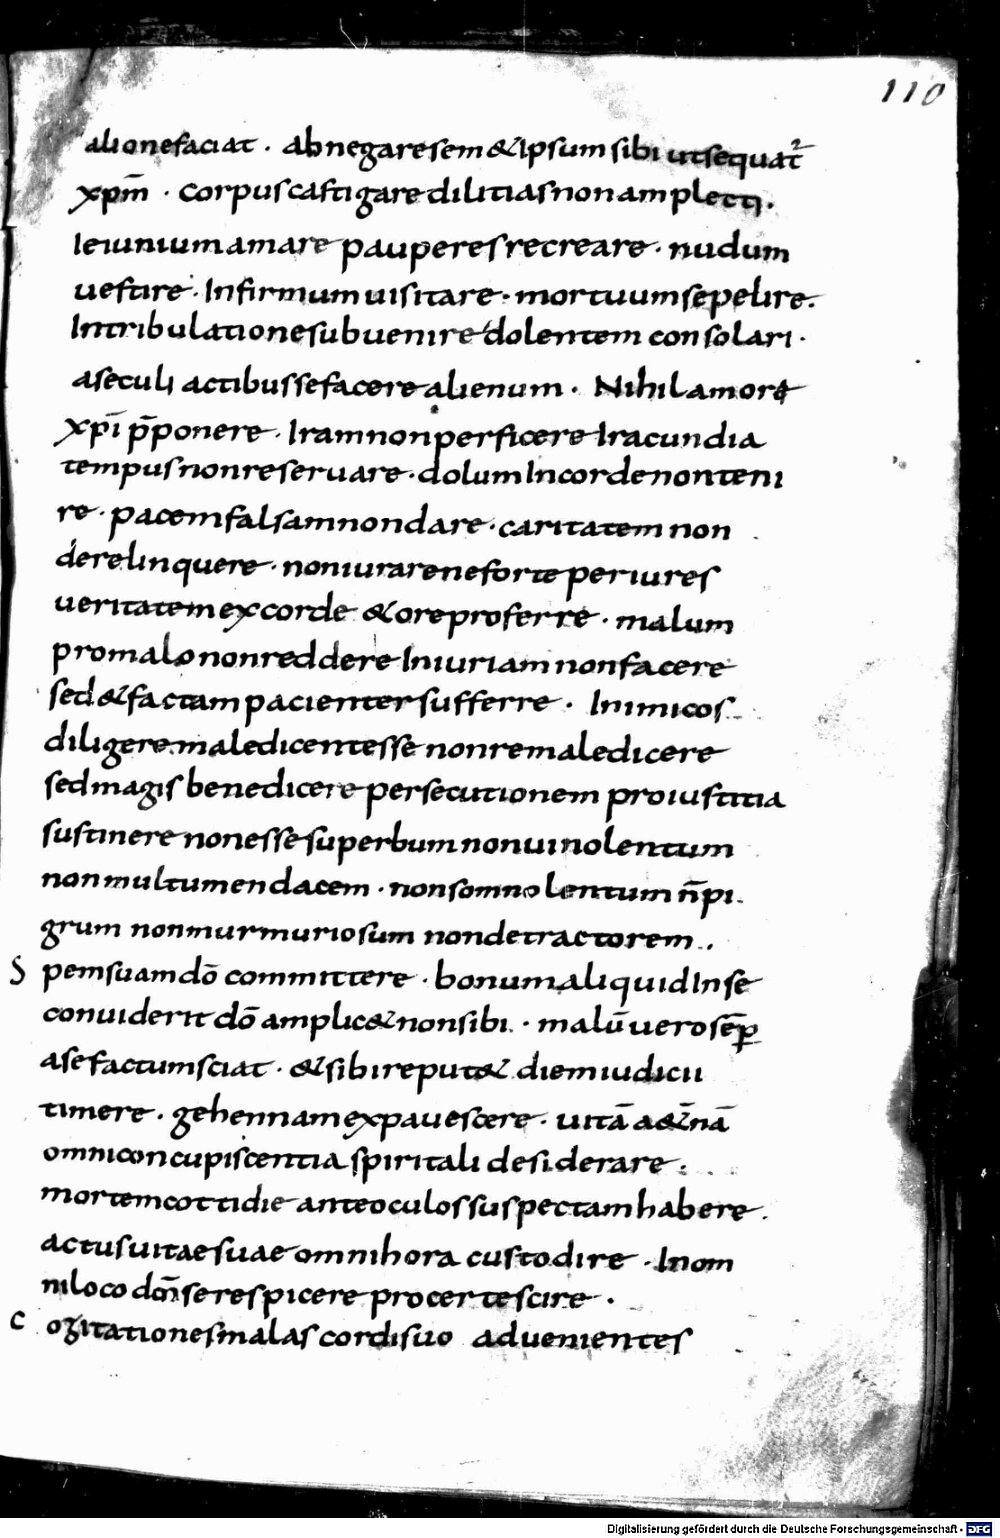 110
alio ne faciat · abnegare sem & ipsum sibi ut sequat᷑
xp̄m · corpus castigare dilitias non amplecti.
Ieiunium amare pauperes recreare · nudum
uestire · Infirmum uisitare · mortuum sepelire.
In tribulatione subuenire dolentem consolari ·
a seculi actibus se facere alienum · Nihil amore
xp̄i p̄ponere · Iram non perficere Iracundia
tempus non reseruare · dolum In corde non teni
re · pacem falsam non dare · caritatem non
derelinquere · non iurare ne forte periures
ueritatem ex corde & ore proferre · malum
pro malo non reddere Iniuriam non facere
sed & factam pacienter sufferre · Inimicos
diligere maledicentes se non remaledicere
sed magis benedicere persecutionem pro iustitia
sustinere non esse superbum non uinolentum
non multum endacem · non somnolentum n̄ pi
grum non murmuriosum non detractorem.
Spem suam dō committere · bonum aliquid In se
con uiderit dō amplic& non sibi · malū uero semꝑ
a se factum sciat · & sibi reput& diem iudicii
timere · gehennam expauescere · uitā a&̄nā
omni concupiscentia spiritali desiderare ·
mortem cottidie ante oculos suspectam habere.
actus uitae suae omni hora custodire · In om
ni loco dm̄ se respicere pro certe scire ·
Cogitationes malas cordi suo aduenientes
Digitalisierung gefördert durch die Deutsche Forschungsgemeinschaft - DFG